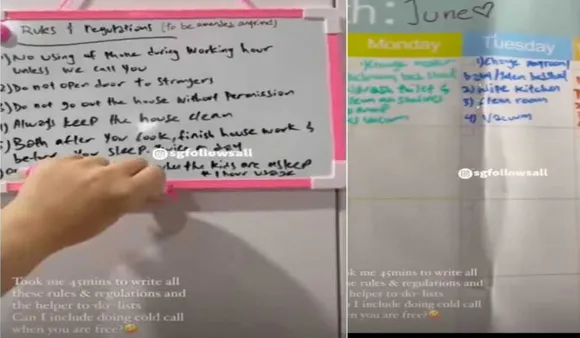 Rules & Regulations (to be amended anytime)
1) No using of Phone during working hour
unless we call you
2) Do not open door to strangers
3) Do not go out the house without permission
) Always keep the house clean
) Both after you cook, finish house work &
before you sleep. twice a day
the kids are asleep
1 hour usage
@sgfollowsall
Took me 45mins to write all
these rules & regulations and
the helper to-do-lists
Can I include doing cold call
when you are free?🤣
h: June♡
Monday
Tuesday
1) Change
2) Wipe kitchen
3) clean room
4) Vacuum
toilet &
Vacuum
@sgfollowsall
k me 45mins to write all
se rules & regulations and
helper to-do-lists
I include doing cold call
en you are free?🤣